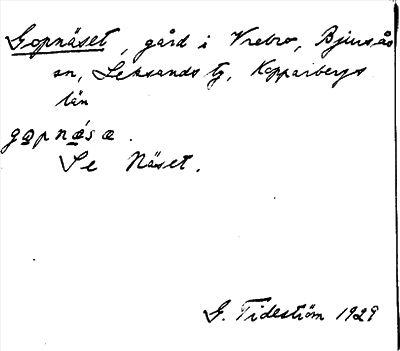 Gopnäset, gård i Vrebro, Bjursås
sn, Leksands tg, Kopparbergs
län
gɑpnǽsæ.
Se Näset.
G. Tideström 1929